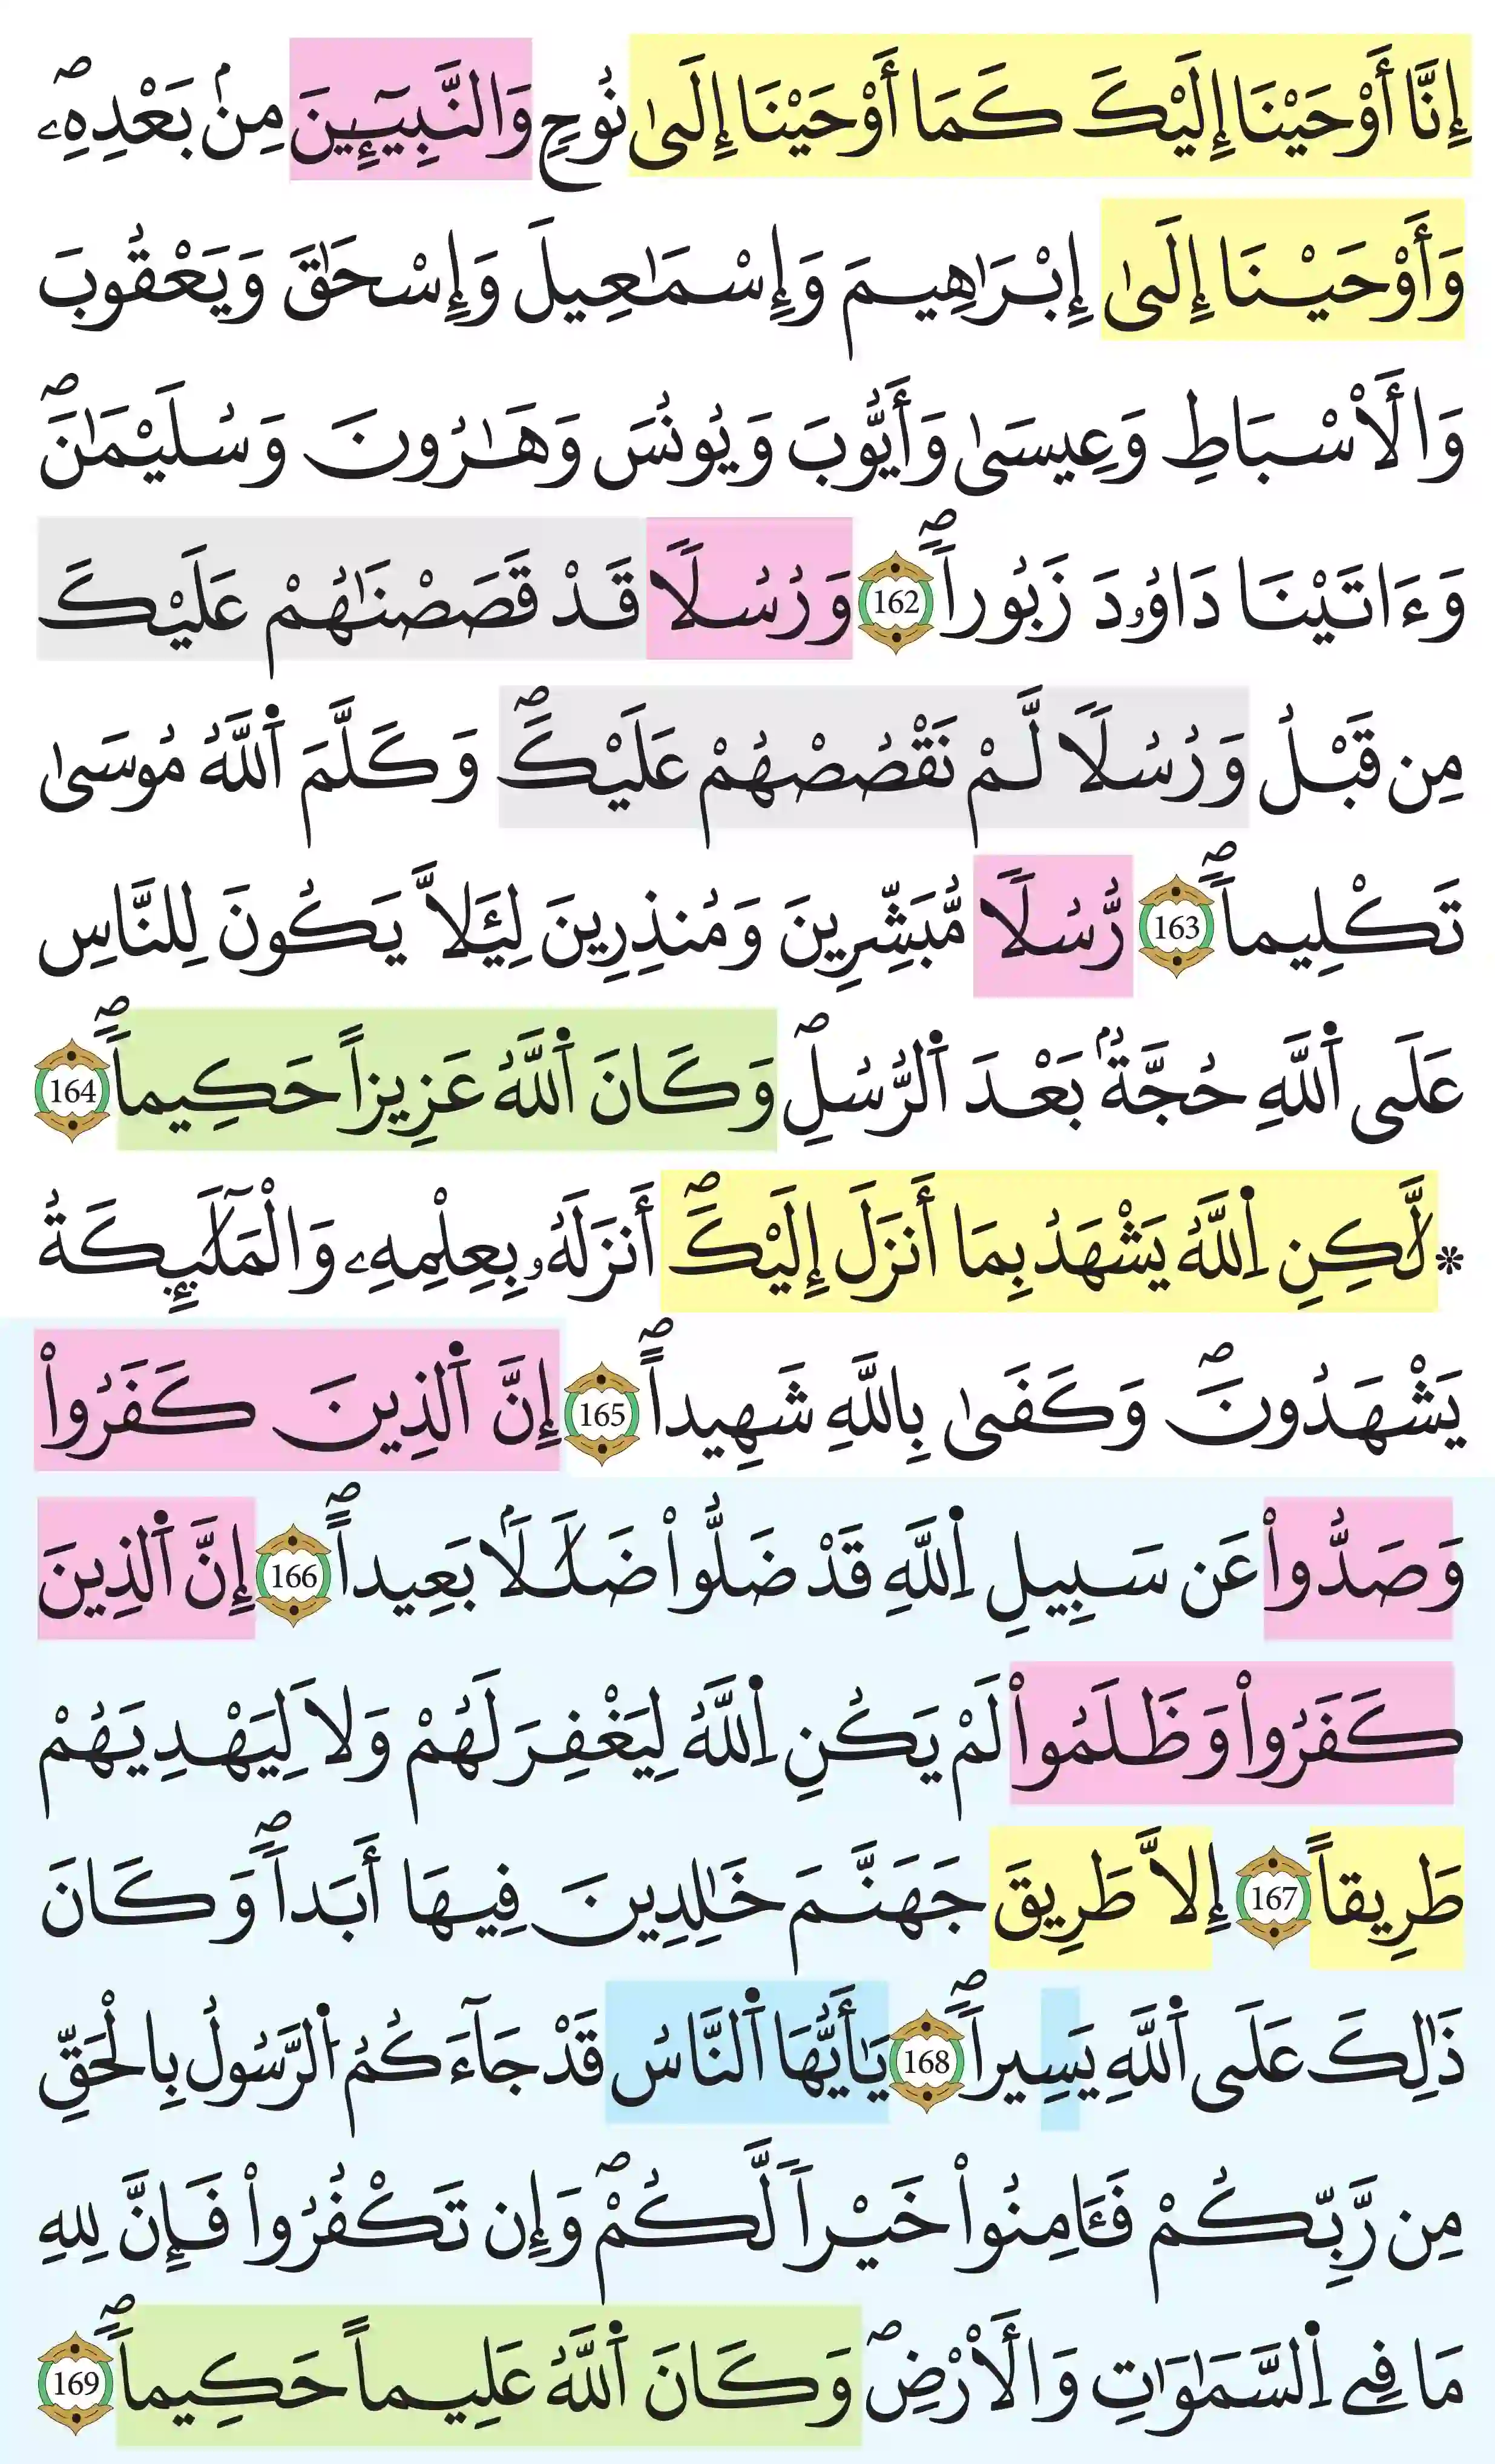 إِنَّا أَوْحَيْنَا إِلَيْكَ كَمَا أَوْحَيْنَا إِلَىٰ نُوحٍ وَالنَّبِيـِٕينَ مِنۢ بَعْدِهِۦۖ
وَأَوْحَيْنَا إِلَىٰ إِبْرَاهِيمَ وَإِسْمَاعِيلَ وَإِسْحَٰقَ وَيَعْقُوبَ
وَالْأَسْبَاطِ وَعِيسَىٰ وَأَيُّوبَ وَيُونُسَ وَهَٰرُونَ وَسُلَيْمَٰنَۖ
وَءَاتَيْنَا دَاوُۥدَ زَبُوراًۖ 162 وَرُسُلًا قَدْ قَصَصْنَٰهُمْ عَلَيْكَ
مِن قَبْلُ وَرُسُلًا لَّمْ نَقْصُصْهُمْ عَلَيْكَۖ وَكَلَّمَ اَ۬للَّهُ مُوسَىٰ
تَكْلِيماًۖ 163 رُّسُلًا مُّبَشِّرِينَ وَمُنذِرِينَ لِيَ۬لَّا يَكُونَ لِلنَّاسِ
عَلَى اَ۬للَّهِ حُجَّةُۢ بَعْدَ اَ۬لرُّسُلِۖ وَكَانَ اَ۬للَّهُ عَزِيزاً حَكِيماًۖ 164
* لَّٰكِنِ اِ۬للَّهُ يَشْهَدُ بِمَا أَنزَلَ إِلَيْكَۖ أَنزَلَهُۥ بِعِلْمِهِۦ وَالْمَلَٰٓئِكَةُ
يَشْهَدُونَۖ وَكَفَىٰ بِاللَّهِ شَهِيداًۖ 165 إِنَّ اَ۬لذِينَ كَفَرُواْ
وَصَدُّواْ عَن سَبِيلِ اِ۬للَّهِ قَدْ ضَلُّواْ ضَلَٰلَاۢ بَعِيداًۖ 166 إِنَّ اَ۬لذِينَ
كَفَرُواْ وَظَلَمُواْ لَمْ يَكُنِ اِ۬للَّهُ لِيَغْفِرَ لَهُمْ وَلَا لِيَهْدِيَهُمْ
طَرِيقاً 167 إِلَّا طَرِيقَ جَهَنَّمَ خَٰلِدِينَ فِيهَا أَبَداًۖ وَكَانَ
ذَٰلِكَ عَلَى اَ۬للَّهِ يَسِيراًۖ 168 يَٰأَيُّهَا اَ۬لنَّاسُ قَدْ جَآءَكُمُ اُ۬لرَّسُولُ بِالْحَقِّ
مِن رَّبِّكُمْ فَـَٔامِنُواْ خَيْراً لَّكُمْۖ وَإِن تَكْفُرُواْ فَإِنَّ لِلهِ
مَا فِے اِ۬لسَّمَٰوَٰتِ وَالْأَرْضِۖ وَكَانَ اَ۬للَّهُ عَلِيماً حَكِيماًۖ 169